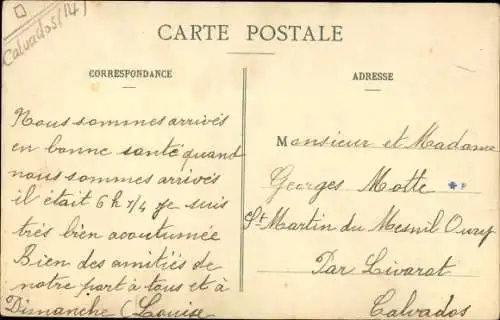 Calvados (14)
CARTE POSTALE
CORRESPONDANCE
Nous sommes arrivés
en bonne santé quand
nous sommes arrivés
il était 6 h 3/4 Je suis
très bien acoutumée
Bien des amitiés de
notre part à tous et à
Dimanche (Louise
ADRESSE
Monsieur et Madame
Georges Motte
St Martin du Mesnil Oury
Par Livarot
Calvados